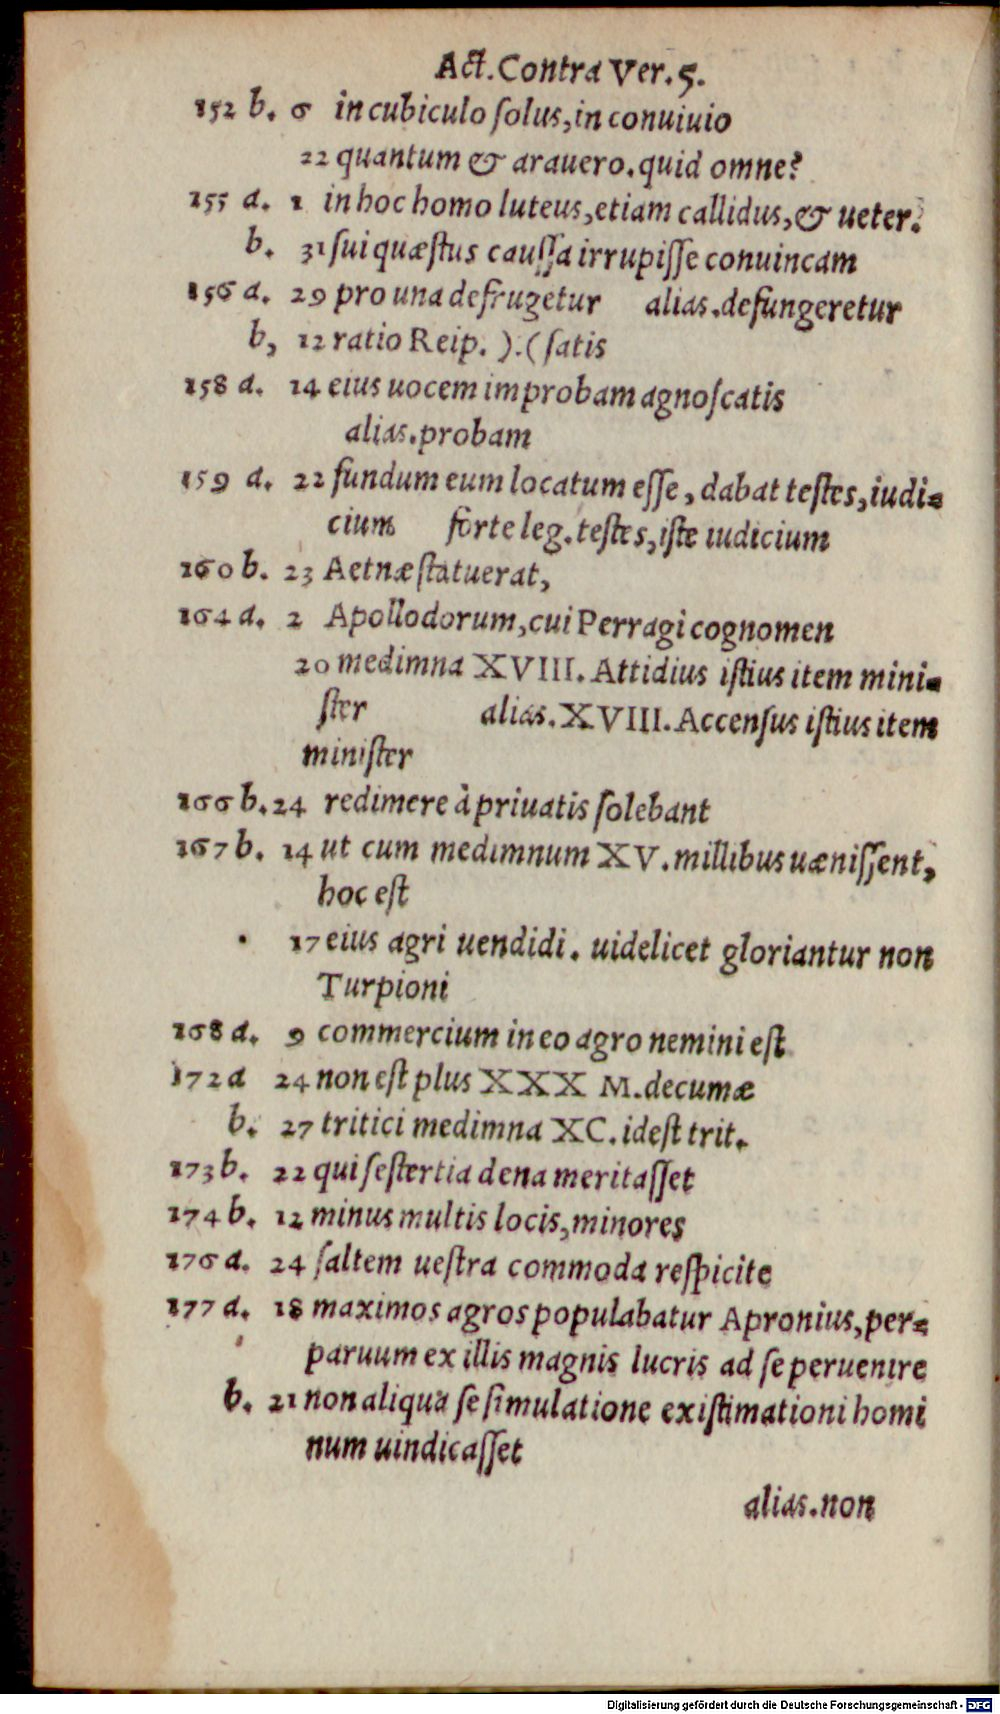 Act. Contra Ver. 5.
152 b. 6 in cubiculo ſolus, in conuiuio
22 quantum & arauero. quid omne?
155 a. 1 in hoc homo luteus, etiam callidus, & ueter.
b. 31 ſui quæſtus cauſſa irrupiſſe conuincam
156 a. 29 pro una defrugetur alias. defungeretur
b, 12 ratio Reip. ).( ſatis
158 a. 14 eius uocem improbam agnoſcatis
alias. probam
159 a. 22 fundum eum locatum eſſe, dabat teſtes, iudi-
cium forte leg. teſtes, iſte iudicium
160 b. 23 Aetnæ ſtatuerat,
164 a. 2 Apollodorum, cui Perragi cognomen
20 medimna XVIII. Attidius iſtius item mini-
ſter alias. XVIII. Accenſus iſtius item
miniſter
166 b. 24 redimere à priuatis ſolebant
167 b. 14 ut cum medimnum XV. millibus uæniſſent,
hoc eſt
17 eius agri uendidi. uidelicet gloriantur non
Turpioni
168 a. 9 commercium in eo agro nemini eſt
172 a 24 non eſt plus XXX M. decumæ
b. 27 tritici medimna XC. ideſt trit.
173 b. 22 qui ſeſtertia dena meritaſſet
174 b. 12 minus multis locis, minores
176 a. 24 ſaltem ueſtra commoda reſpicite
177 a. 18 maximos agros populabatur Apronius, per-
paruum ex illis magnis lucris ad ſe peruenire
b. 21 non aliqua ſe ſimulatione exiſtimationi homi
num uindicaſſet
alias. non
Digitalisierung gefördert durch die Deutsche Forschungsgemeinschaft - DFG